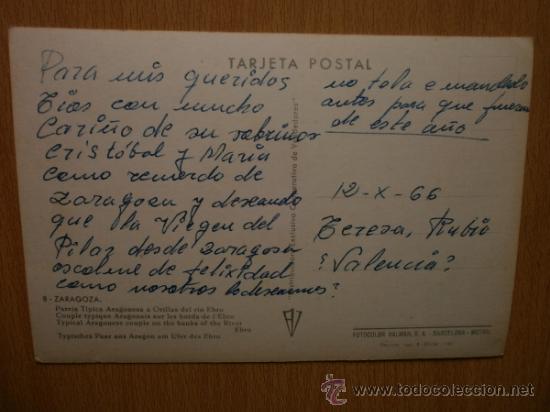 TARJETA POSTAL
Para mis queridos
Tios con mucho
Cariño de su sobrinos
Cristóbal y Maria
como recuerdo de
Zaragoza y deseando
que la Viegen del
Pilar desde Zaragosa
os colme de felixidad
como nosotros lo deseamos?
no tela e mandado
antes para que fuera
de este año
12-X-66
Teresa, Rubio
¿Valencia?
8 - ZARAGOZA.
Pareja Típica Aragonesa a Orillas del río Ebro
Couple typique Aragonais sur les bords de l'Ebro
Typical Aragonese couple on the banks of the River
Ebro
Typisches Paar aus Aragon am Ufer des Ebro
FOTOCOLOR VALMAN, S. A. - BARCELONA -
todocoleccion.net